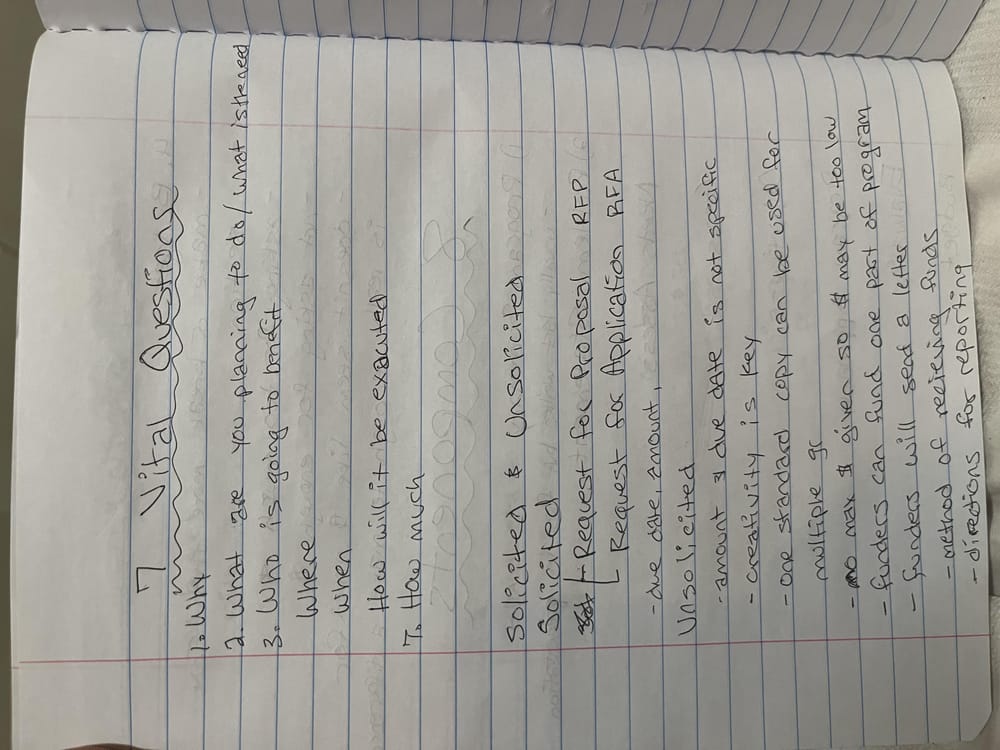 7 Vital Questions
1. Why
2. What are you planning to do/ what is the need
3. Who is going to benefit
Where
When
How will it be exacuted
7. How much
Solicited & Unsolicited
Solicited
- Request for Proposal RFP
Request for Application RFA
- due date, amount,
Unsolicited
- amount & due date is not specific
- creativity is key
- one standard copy can be used for
multiple gr
- no max $ given so $ may be too low
- funders can fund one part of program
- funders will send a letter
- method of recieving funds
- directions for reporting